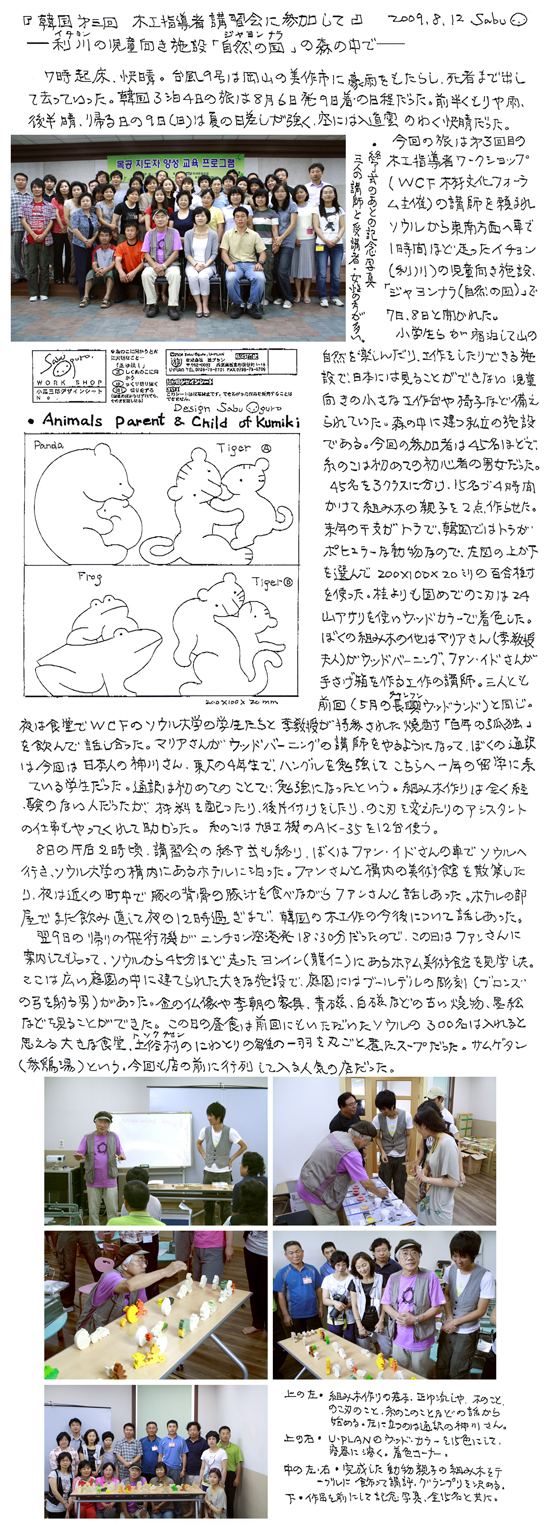 『韓国第三回 木工指導者講習会に参加して』 2009.8.12 Sabu
イチョン ジャヨンナラ
―利川の児童向き施設「自然の国」の森の中で―
7時起床、快晴。台風9号は岡山の美作市に豪雨をもたらし、死者まで出し
て去っていった。韓国3泊4日の旅は8月6日発9日着の日程だった。前半くもりや雨、
後半晴、帰る日の9日(日)は夏の日差しが強く、空には入道雲のわく快晴だった。
목공 지도자 양성 교육 프로그램
・終了式のあとの記念写真
三人の講師と受講者・女性の方が多い。
今回の旅は第3回目の
木工指導者ワークショップ
(WCF木材文化フォーラ
ム主催)の講師を頼まれ
ソウルから東南方面へ車で
1時間ほど走ったイチョン
(利川)の児童向き施設、
「ジャヨンナラ(自然の国)」で
7日、8日と開かれた。
小学生らが宿泊して山の
自然を楽しんだり、工作をしたりできる施
設で、日本には見ることができない児童
向きの小さな工作台や椅子など備え
られていた。森の中に建つ私立の施設
である。今回の参加者は45名ほどで、
糸のこは初めての初心者の男女だった。
45名を3クラスに分け、15名づつ4時間
かけて組み木の親子を2点作らせた。
来年の干支がトラで、韓国ではトラが
ポピュラーな動物なので、左図の上か下
を選んで200×100×20ミリの百合樹材
を使った。桂よりも固めでのこ刃は24
山アサリを使いウッドカラーで着色した。
ぼくの組み木の他はマリアさん(李教授
夫人)がウッドバーニング、ファン・イドさんが
手さげ箱を作る工作の講師。三人とも
チャンフン
前回(5月の長興ウッドランド)と同じ。
Sabu Oguro.
WORK SHOP
小黒三郎デザインシート
No.
Design Sabu Oguro
・Animals Parent & Child of Kumiki
Panda
Tiger A
Frog
Tiger B
200×100×20mm
夜は食堂でWCFのソウル大学の学生たちと李教授が持参された焼酎「百年の孤独」
を飲んで話し合った。マリアさんがウッドバーニングの講師をやるようになって、ぼくの通訳
は今回は日本人の神川さん、東大の4年生で、ハングルを勉強してこちらへ一年の留学に来
ている学生だった。通訳は初めてのことで、勉強になったという。組み木作りは全く経
験のない人だったが、材料を配ったり、後片付けをしたり、のこ刃を変えたりのアシスタント
の仕事もやってくれて助かった。糸のこは旭工機のAK-35を12台使う。
8日の午后2時頃、講習会の終了式も終り、ぼくはファン・イドさんの車でソウルへ
行き、ソウル大学の構内にあるホテルに泊った。ファンさんと構内の美術館を散策した
り、夜は近くの町中で豚の背骨の豚汁を食べながらファンさんと話しあった。ホテルの部
屋でまた飲み直して夜の12時過ぎまで、韓国の木工作の今後について話しあった。
翌9日の帰りの飛行機がニンチョン空港発18:30分だったので、この日はファンさんに
案内してもらって、ソウルから45分ほど走ったヨンイン(龍仁)にあるホアム美術館を見学した。
ここは広い庭園の中に建てられた大きな施設で、庭園にはブールデルの彫刻(ブロンズ
の弓を射る男)があった。金の仏像や李朝の家具、青磁、白磁などの古い焼物、墨絵
などを見ることができた。この日の昼食は前回にもいただいたソウルの300名は入れると
思える大きな食堂、土俗村のにわとりの雛の一羽を丸ごと煮たスープだった。サムゲタン
(参鶏湯)という。今回も店の前に行列して入る人気の店だった。
上の左・組み木作りの基本、正中流しや、木のこと、
のこ刃のこと、糸のこのことなどの話から
始める。左に立つのは通訳の神川さん。
上の右・U-PLANのウッド・カラーを15色にして、
容器に溶く。着色コーナー。
中の左・右・完成した動物親子の組み木をテ
ーブルに飾って講評、グランプリを決める。
下・作品を前にして記念写真、全15名と共に。